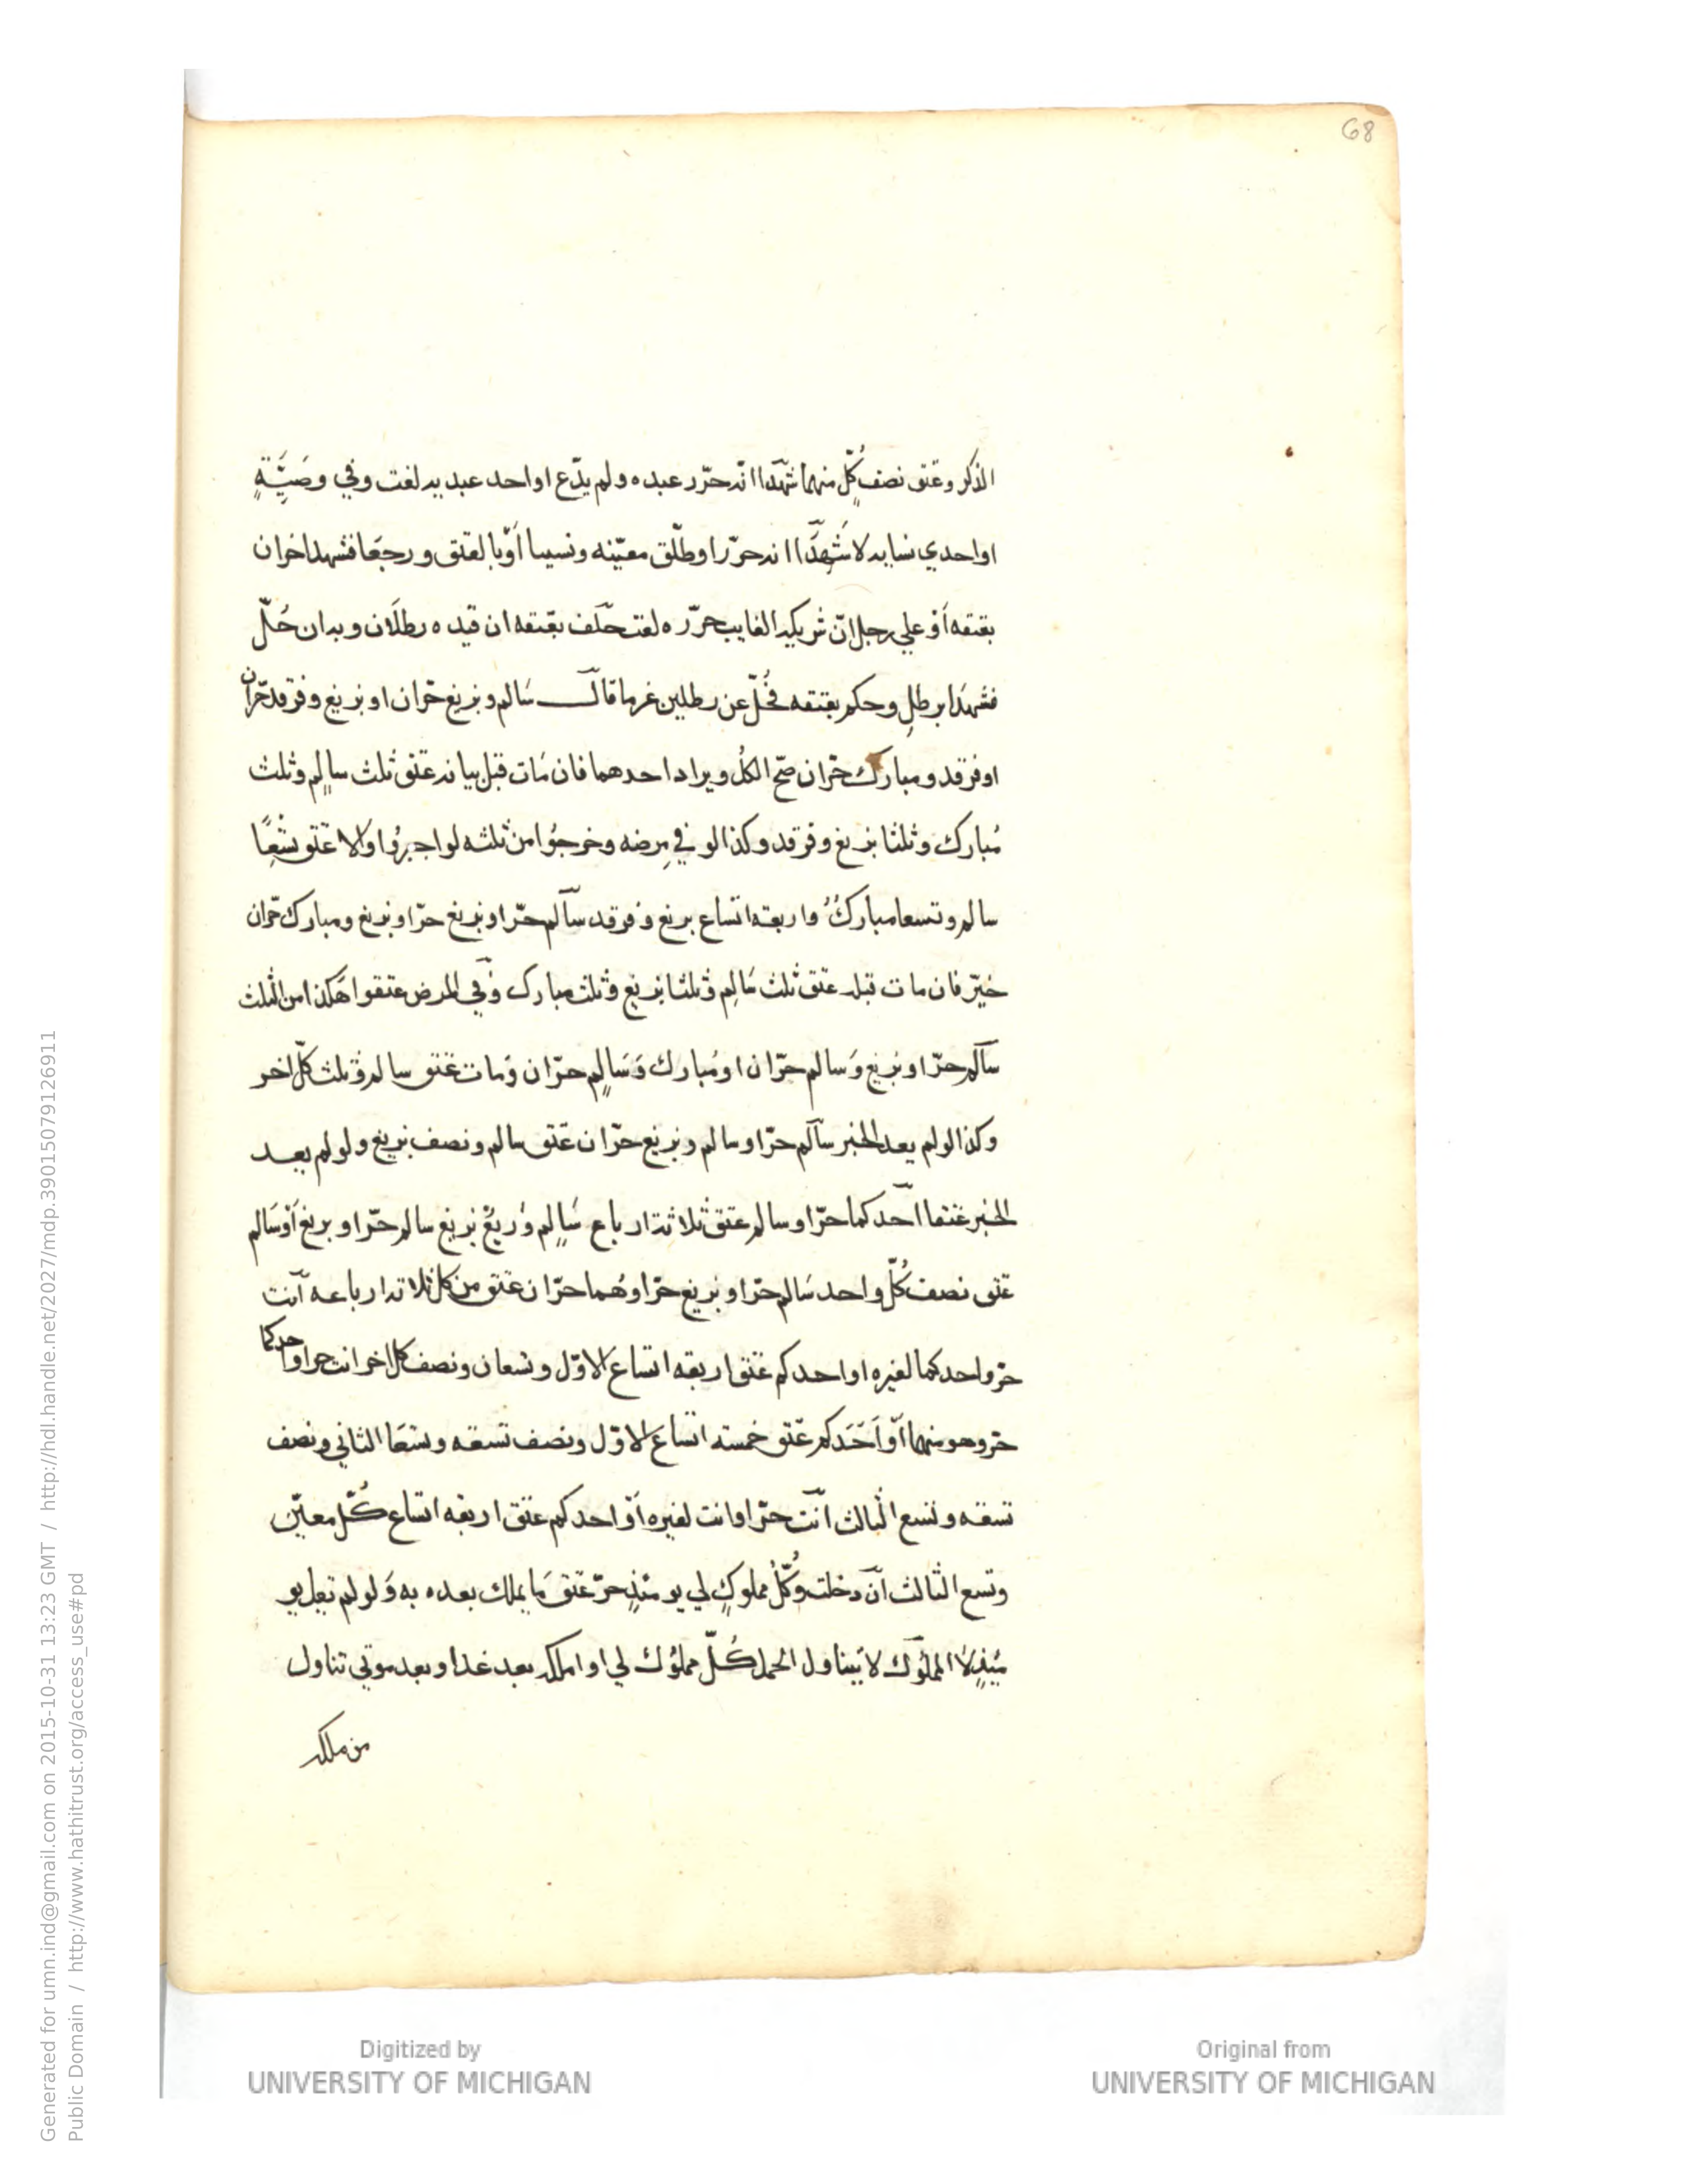 68
الذكر وعتق نصف كل منهما شهدا انه حرّر عبده ولم يدّع او احد عبديه لغت وفي وصيّةٍ
او احدي نسايه لا شهدا انه حرّر او طلّق معيّنه ونسيا او بالعتق ورجعا فشهد اخران
بعتقه او علي رجل انّ شريكه الغايب حرّره لغت حلف بعتقه ان قيده رطلان وبه ان حُلّ
فشهدا برطلٍ وحكم بعتقه فحُلّ عن رطلين غرما قال سالم وبزيغ حرّان او بزيغ وفرقد حرّان
او فرقد ومبارك حرّان صحّ الكل ويراد احدهما فان مات قبل بيانه عتق ثلث سالمٍ وثلث
مبارك وثلثا بزيغ وفرقد وكذا لو في مرضه وخرجوا من ثلثه لو اجيزوا والا عتق تسعًا
سالم وتسعا مبارك واربعة اتساع بزيغ وفرقد سالم حرّ او بزيغ حرّ او بزيغ ومبارك حرّان
خيّر فان مات قبله عتق ثلث سالم وثلثا بزيغ وثلث مبارك وفي المرض عتقوا هكذا من الثلث
سالم حرّ او بزيغ وسالم حرّان او مبارك وسالم حرّان ومات عتق سالم وثلث كلّ اخر
وكذا لو لم يعد الخبر سالم حرّ او سالم وبزيغ حرّان عتق سالم ونصف بزيغ ولو لم يعد
الخبر عتقا احدكما حرّ او سالم عتق ثلاثة ارباع سالم وربع بزيغ سالم حرّ او بزيغ او سالم
عتق نصف كلّ واحد سالم حرّ او بزيغ حرّ او هما حرّان عتق من كل ثلاثة ارباعه انت
حرّ واحدكما لغيره او احدكم عتق اربعة اتساع الاوّل وتسعان ونصف كل اخر انت حر او احدكما
حرّ وهو منهما او احدكم عتق خمسة اتساع الاوّل ونصف تسعه وتسعا الثاني ونصف
تسعه وتسع الثالث انت حرّ او انت لغيره او احدكم عتق اربعة اتساع كلّ معيّن
وتسع الثالث ان دخلت وكلّ مملوكٍ لي يومئذٍ حرّ عتق ما يملك بعده به ولو لم يقل يو
مئذٍ لا المملوك لا يتناول الحمل كلّ مملوك لي او املكه بعد غد او بعد موتي تناول
من ملكه
Digitized by
UNIVERSITY OF MICHIGAN
Original from
UNIVERSITY OF MICHIGAN
Generated for umn.ind@gmail.com on 2015-10-31 13:23 GMT / http://hdl.handle.net/2027/mdp.39015079126911
Public Domain / http://www.hathitrust.org/access_use#pd